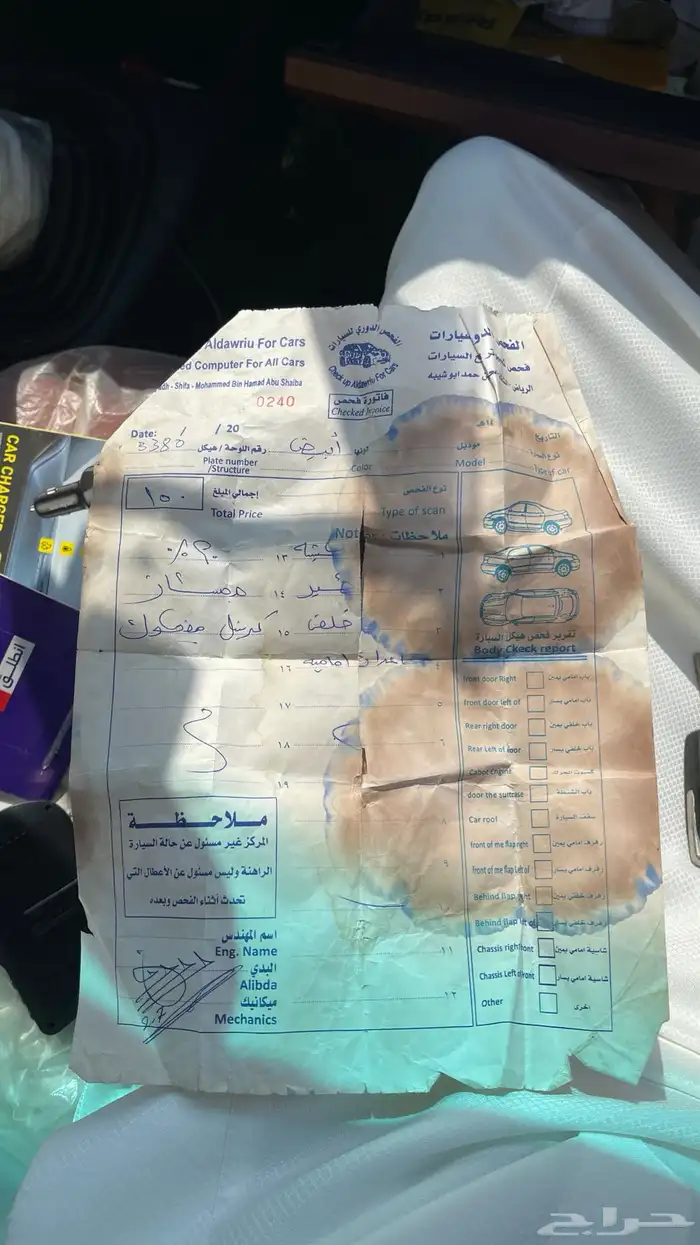 Aldawriu For Cars
ed Computer For All Cars
dh - Shifa - Mohammed Bin Hamad Abu Shaiba
0240
الفحص الدوري للسيارات
Check up Aldawriu For Cars
فاتورة فحص
Checked Invoice
السيارات
حمد ابوشيبه
Date: / / 20
التاريخ
١٤هـ
3380
رقم اللوحة / هيكل
Plate number
/Structure
أبيض
Color
موديل
Model
Type of car
١٥٠
إجمالي المبلغ
Total Price
نوع الفحص
Type of scan
ملاحظات
١
١٣
٢
١٤
٣
خلف
١٥
٤
امامية
١٦
٥
١٧
٦
١٨
١٩
٨
٩
١١
١٢
تقرير فحص هيكل السيارة
Body Ckeck report
front door Right
باب امامي يمين
front door left of
باب امامي يسار
Rear right door
باب خلفي يمين
Rear Left of door
باب خلفي يسار
Cabot Engine
كبسوت المحرك
door the suitcase
باب الشنطة
Car roof
سقف السيارة
front of me flap right
رفرف امامي يمين
front of me flap Left of
رفرف امامي يسار
Behind flap right
رفرف خلفي يمين
Behind flap left of
رفرف خلفي يسار
Chassis right front
شاسية امامي يمين
Chassis Left of front
شاسية امامي يسار
Other
اخرى
ملاحظة
المركز غير مسئول عن حالة السيارة
الراهنة وليس مسئول عن الأعطال التي
تحدث أثناء الفحص وبعده
اسم المهندس
Eng. Name
البدي
Alibda
ميكانيك
Mechanics
CAR CHARGER
انطلق
حراج